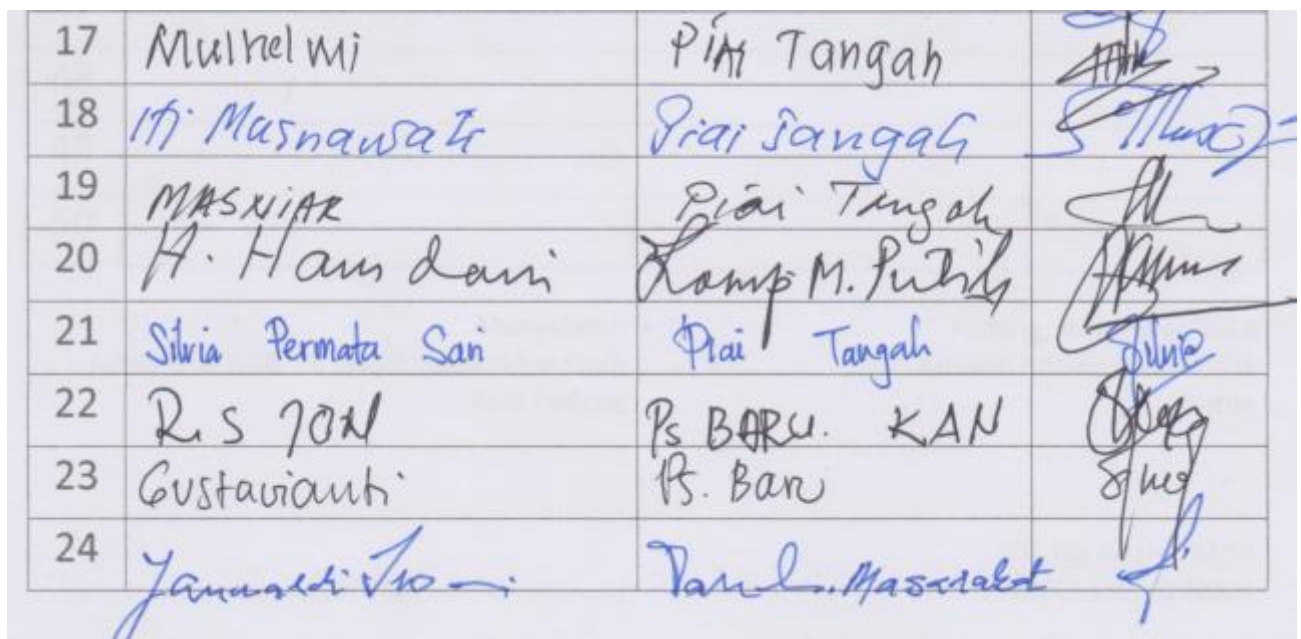 17 Mulhelmi Piai Tangah
18 Hj Masnawati Piai Tangah
19 MASNIAR Piai Tangah
20 H. Hamdani Komp M. Putih
21 Silvia Permata Sari Piai Tangah Silvia
22 R. S JON Ps BARU. KAN
23 Gustavianti Ps. Baru
24 Masarakat